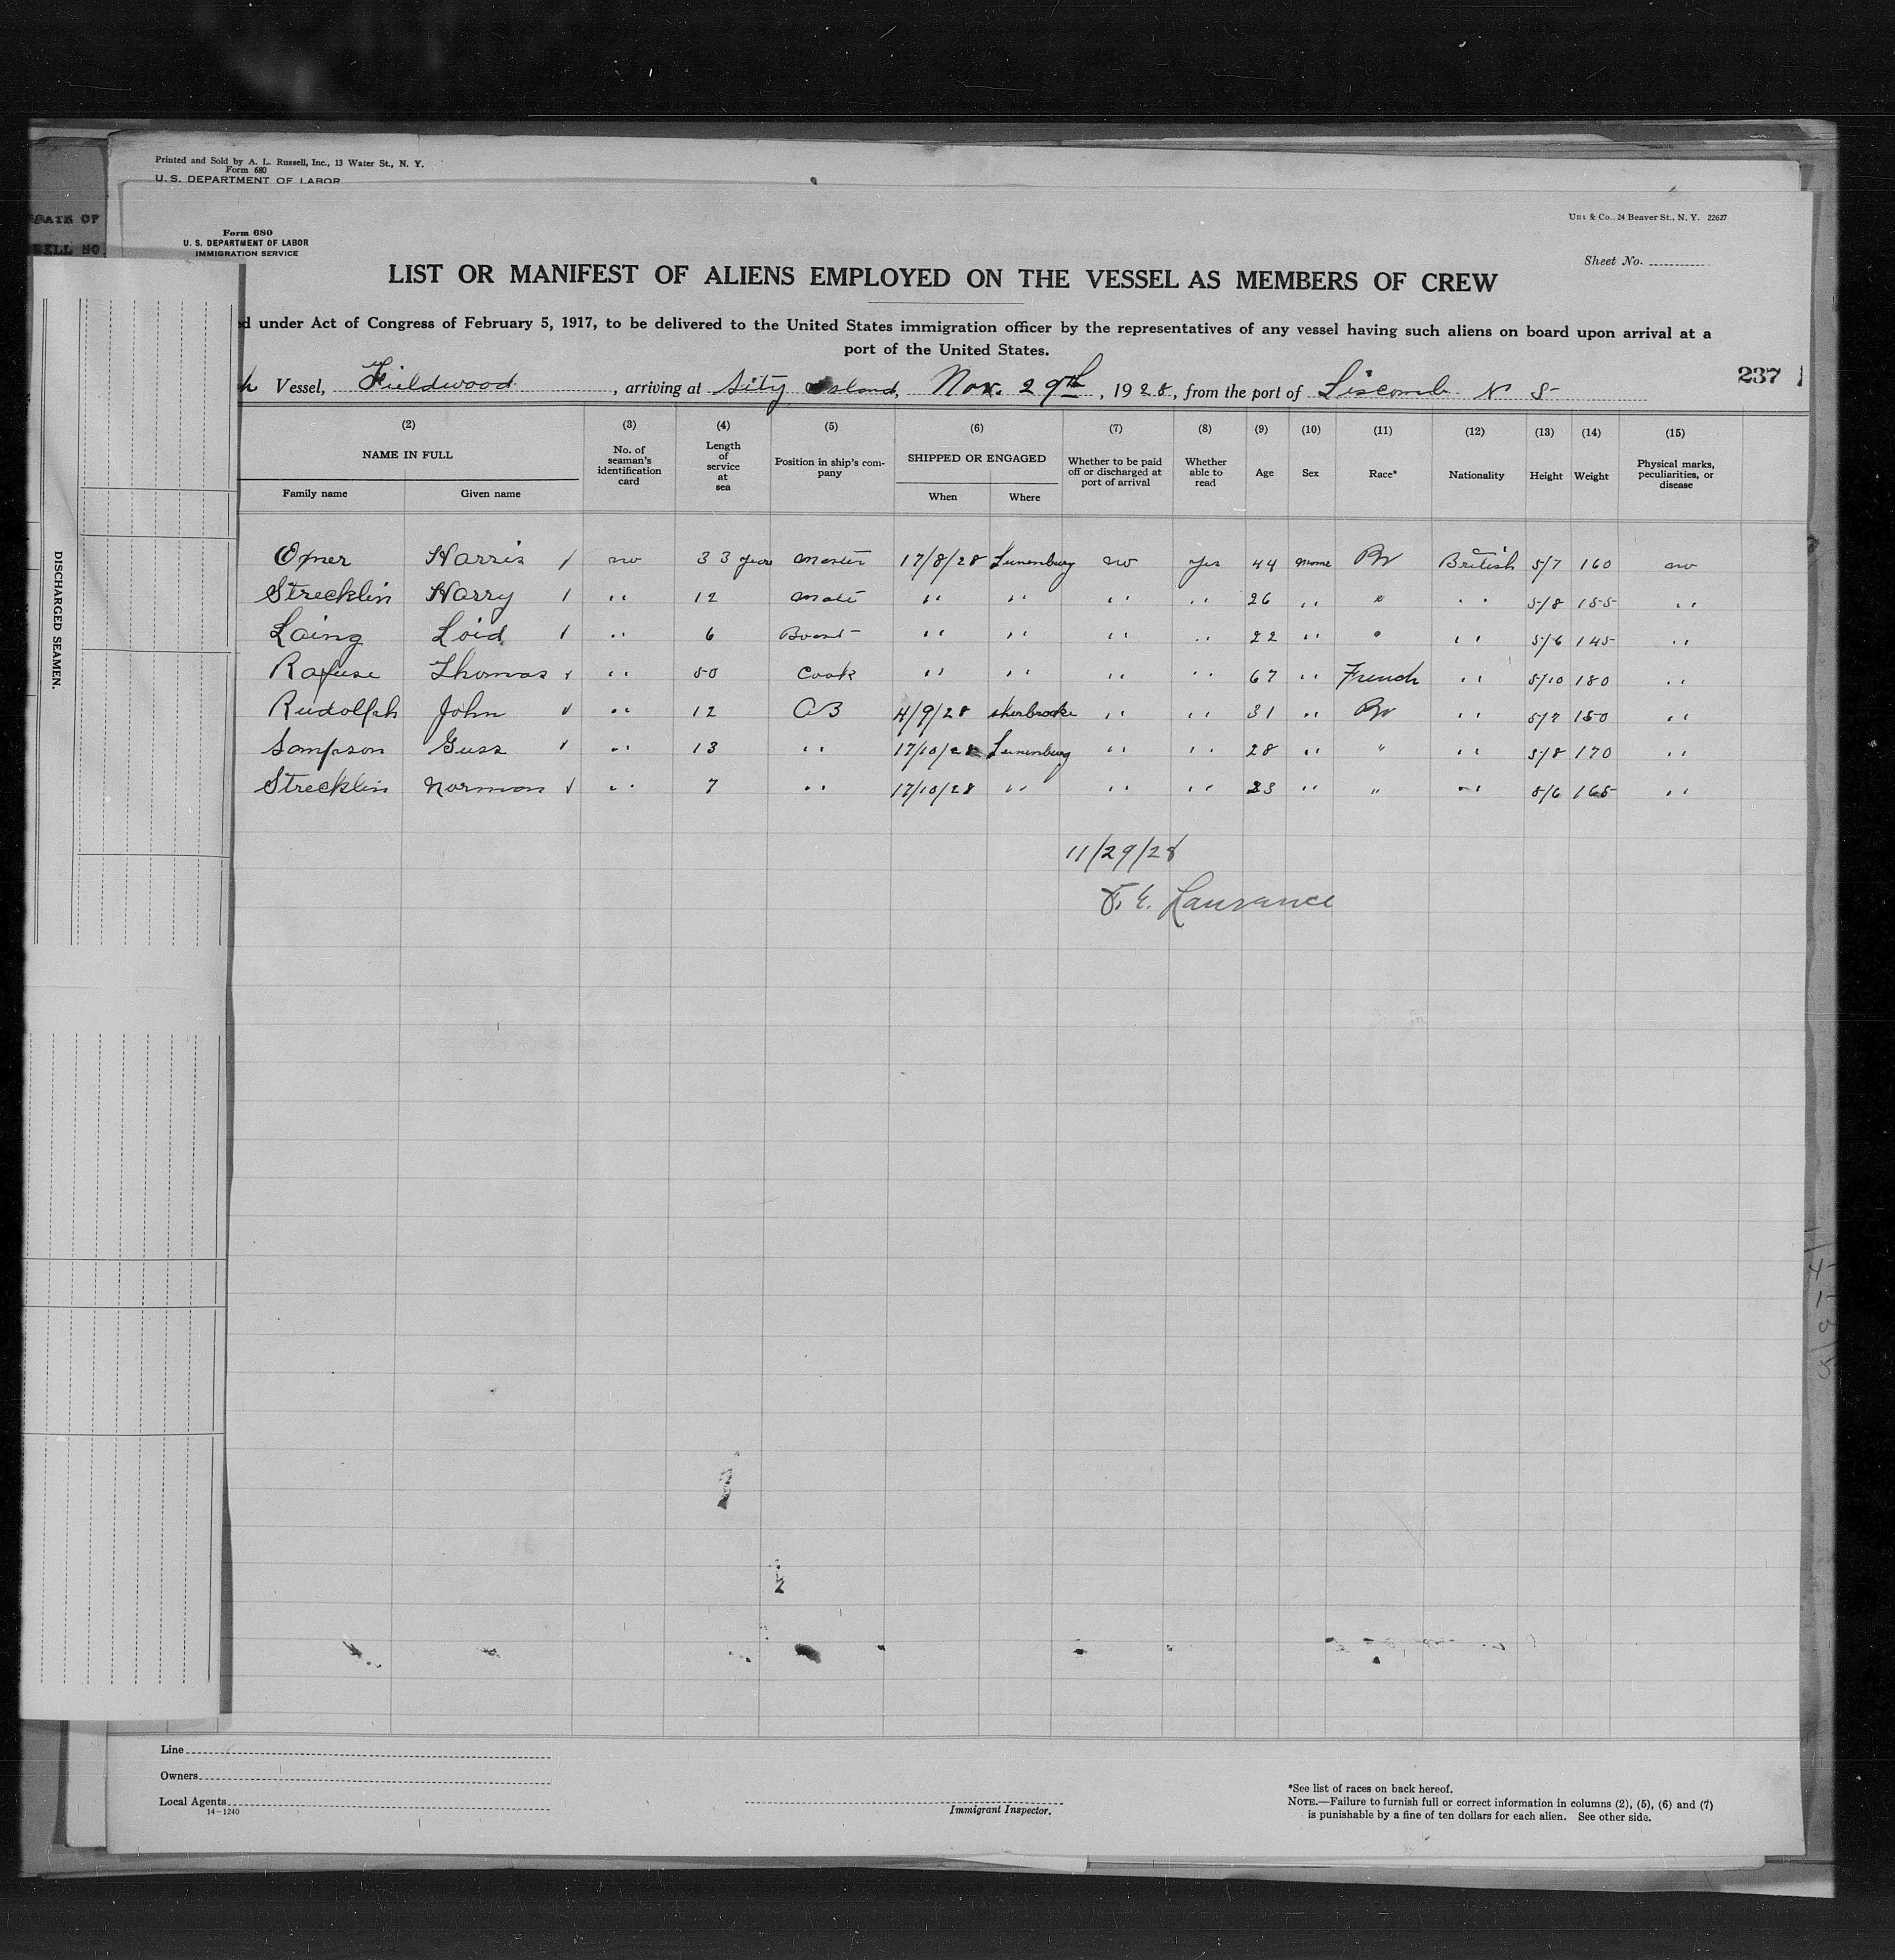 Printed and Sold by A. L. Russell, Inc., 13 Water St., N. Y.
Form 680
U. S. DEPARTMENT OF LABOR
& Co., 24 Beaver St., N. Y. 22627
Form 680
U. S. DEPARTMENT OF LABOR
IMMIGRATION SERVICE
Sheet No.
LIST OR MANIFEST OF ALIENS EMPLOYED ON THE VESSEL AS MEMBERS OF CREW
under Act of Congress of February 5, 1917, to be delivered to the United States immigration officer by the representatives of any vessel having such aliens on board upon arrival at a
port of the United States.
Vessel, Fieldwood, arriving at Sity Island, Nov. 29th, 1928, from the port of Liscomb N S
237
(2) (3) (4) (5) (6) (7) (8) (9) (10) (11) (12) (13) (14) (15)
NAME IN FULL No. of seaman's identification card Length of service at sea Position in ship's company SHIPPED OR ENGAGED Whether to be paid off or discharged at port of arrival Whether able to read Age Sex Race* Nationality Height Weight Physical marks, peculiarities, or disease
Family name Given name When Where
Harris no 33 years Master 17/8/28 Lunenburg no yes 44 Br British 5/7 160 no
Strecklin Harry " 12 Mate " " " " 26 " " " 5/8 155 "
Laing Loid " 6 " " " " 22 " " " 5/6 145 "
Rafuse Thomas " 50 Cook " " " " 67 " French " 5/10 180 "
Rudolph John " 12 AB 4/9/28 Sherbrooke " " 31 " Br " 5/7 150 "
Sampson Guss " 13 " 17/10/28 Lunenburg " " 28 " " " 5/8 170 "
Strecklin Norman " 7 " 17/10/28 " " " 23 " " " 5/6 165 "
11/29/28
Laurance
DISCHARGED SEAMEN.
Line
Owners
Local Agents
14-1240
Immigrant Inspector.
*See list of races on back hereof.
NOTE.—Failure to furnish full or correct information in columns (2), (5), (6) and (7)
is punishable by a fine of ten dollars for each alien. See other side.